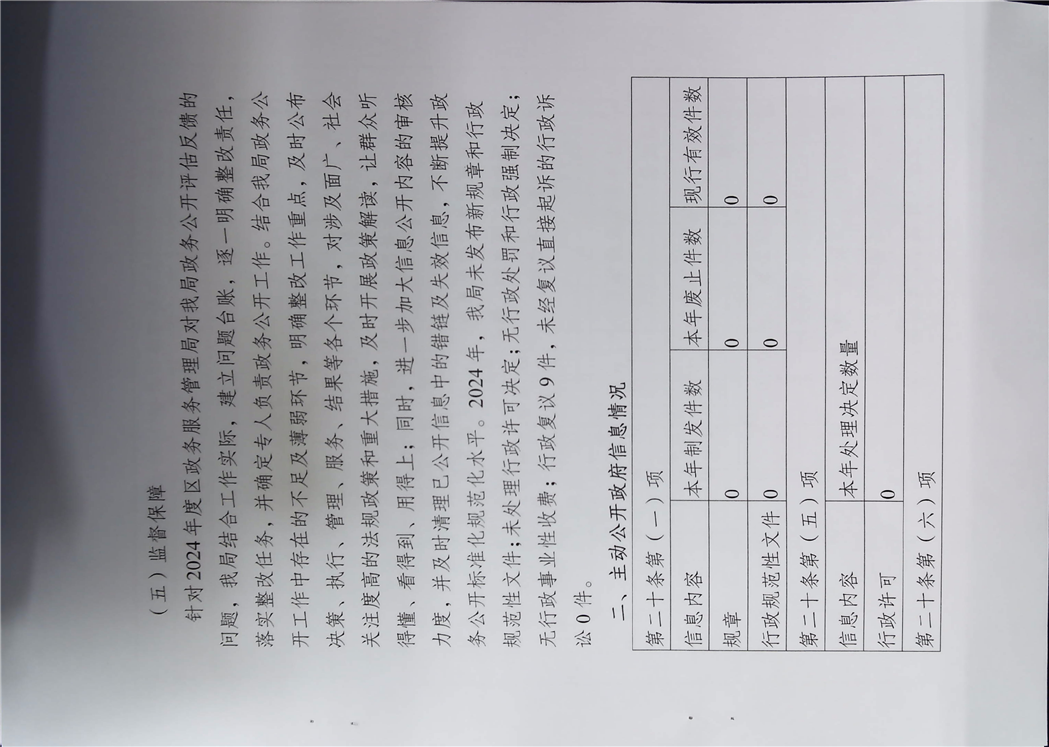 （五）监督保障
针对2024年度区政务服务管理局对我局政务公开评估反馈的
问题，我局结合工作实际，建立问题台账，逐一明确整改责任，
落实整改任务，并确定专人负责政务公开工作。结合我局政务公
开工作中存在的不足及薄弱环节，明确整改工作重点，及时公布
决策、执行、管理、服务、结果等各个环节，对涉及面广、社会
关注度高的法规政策和重大措施，及时开展政策解读，让群众听
得懂、看得到、用得上；同时，进一步加大信息公开内容的审核
力度，并及时清理已公开信息中的错链及失效信息，不断提升政
务公开标准化规范化水平。2024年，我局未发布新规章和行政
规范性文件；未处理行政许可决定；无行政处罚和行政强制决定；
无行政事业性收费；行政复议9件，未经复议直接起诉的行政诉
讼0件。
二、主动公开政府信息情况
第二十条第（一）项
信息内容 本年制发件数 本年废止件数 现行有效件数
规章 0 0 0
行政规范性文件 0 0 0
第二十条第（五）项
信息内容 本年处理决定数量
行政许可 0
第二十条第（六）项